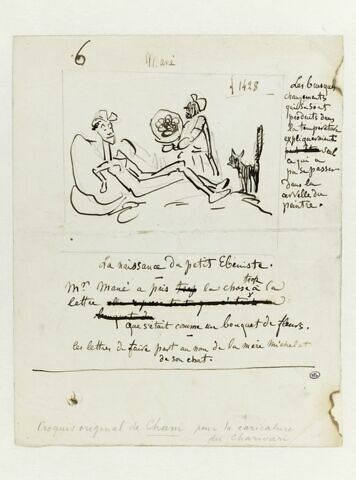 6
Mané
1428
Les brusques
changements
qui se sont
produits dans
la température
expliqueraient
seul
ce qui a
pu se passer
dans la
cervelle du
peintre.
La naissance du petit Ebéniste.
Mr. Mané a pris trop la chose à la
trop
lettre
que c'était comme un bouquet de fleurs.
les lettres de faire part au nom de la mère Michel et
de son chat.
Croquis original de Cham pour la caricature
du Charivari